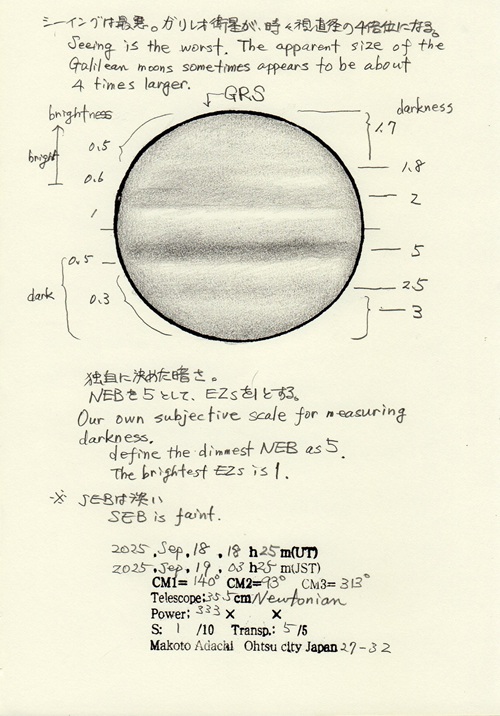 シーイングは最悪。ガリレオ衛星が、時々視直径の4倍位になる。
Seeing is the worst. The apparent size of the
Galilean moons sometimes appears to be about
4 times larger.
GRS
brightness
darkness
bright
0.5
0.6
1
0.5
0.3
dark
1.7
1.8
2
5
2.5
3
独自に決めた暗さ。
NEBを5として、EZsを1とする。
Our own subjective scale for measuring
darkness.
define the dimmest NEB as 5.
The brightest EZs is 1.
※ SEBは淡い
SEB is faint.
2025, Sep, 18, 18 h 25 m(UT)
2025, Sep, 19, 03 h 25 m(JST)
CM1= 140° CM2= 93° CM3= 313°
Telescope; 35.5cm Newtonian
Power; 333 × ×
S: 1 /10 Transp.; 5 /5
Makoto Adachi Ohtsu city Japan 27-32